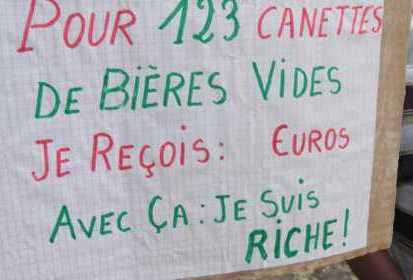 POUR 123 CANETTES
DE BIÈRES VIDES
JE REÇOIS: EUROS
AVEC ÇA: JE SUIS
RICHE!